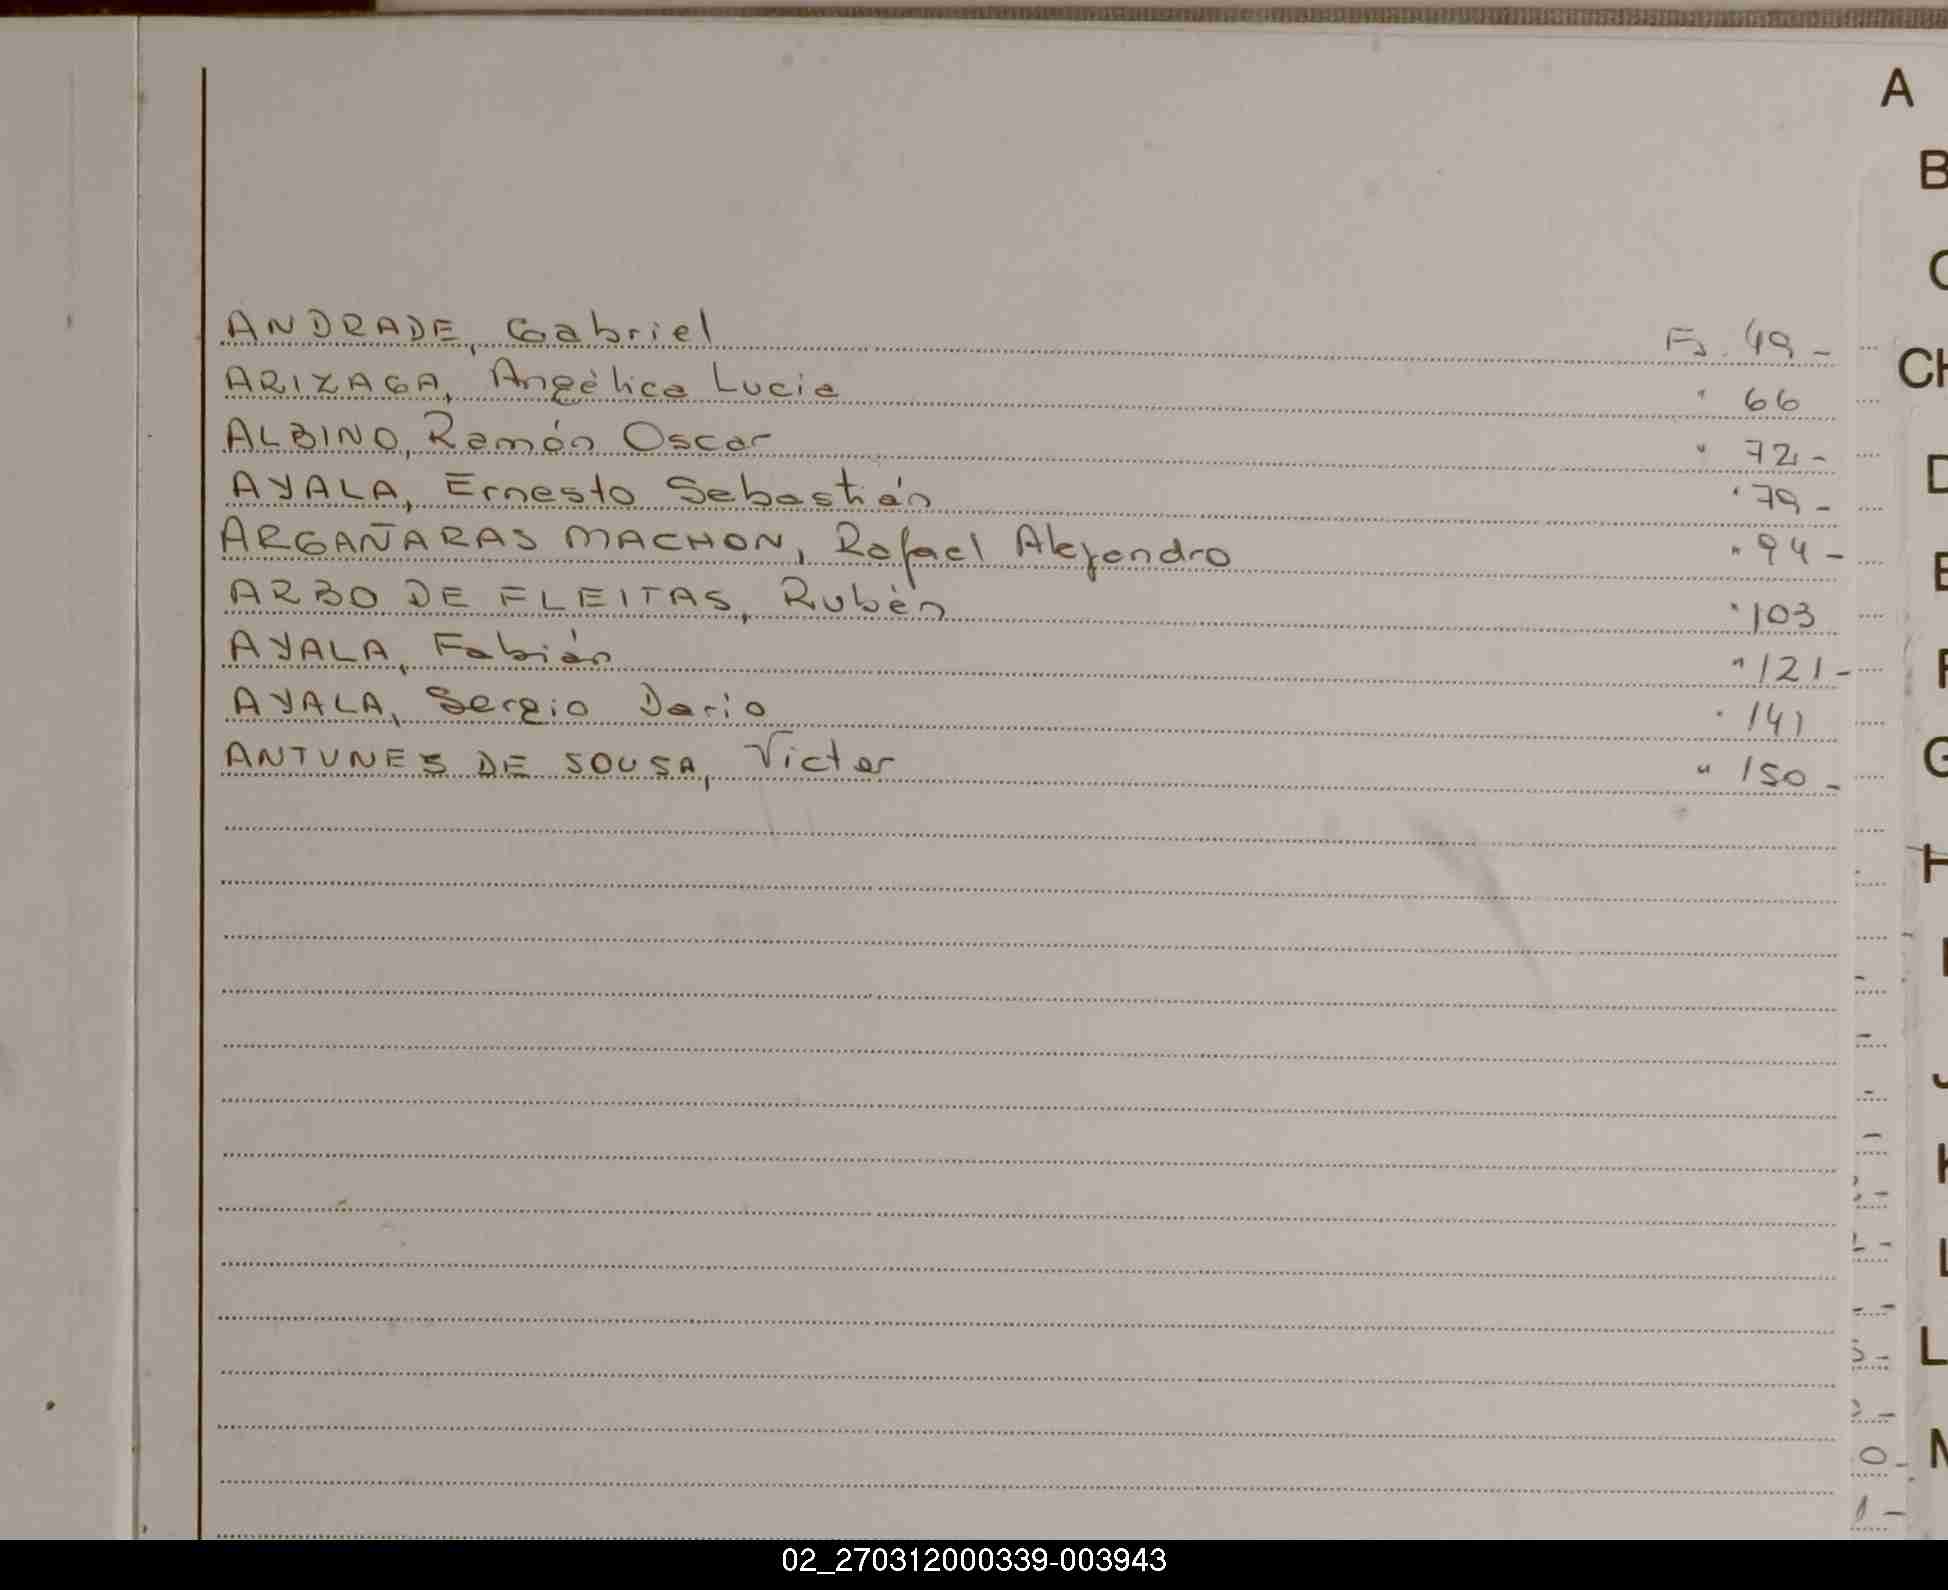 A
B
C
CH
ANDRADE, Gabriel Fs. 49 -
ARIZAGA, Angélica Lucia " 66
ALBINO, Ramón Oscar " 72 -
D
AYALA, Ernesto Sebastián " 79 -
ARGAÑARAS MACHON, Rafael Alejandro " 94 -
E
ARBO DE FLEITAS, Rubén " 103
AYALA, Fabián " 121 -
F
AYALA, Sergio Dario " 141
ANTUNES DE SOUSA, Victor " 150 -
G
H
I
J
K
L
L
M
02_270312000339-003943